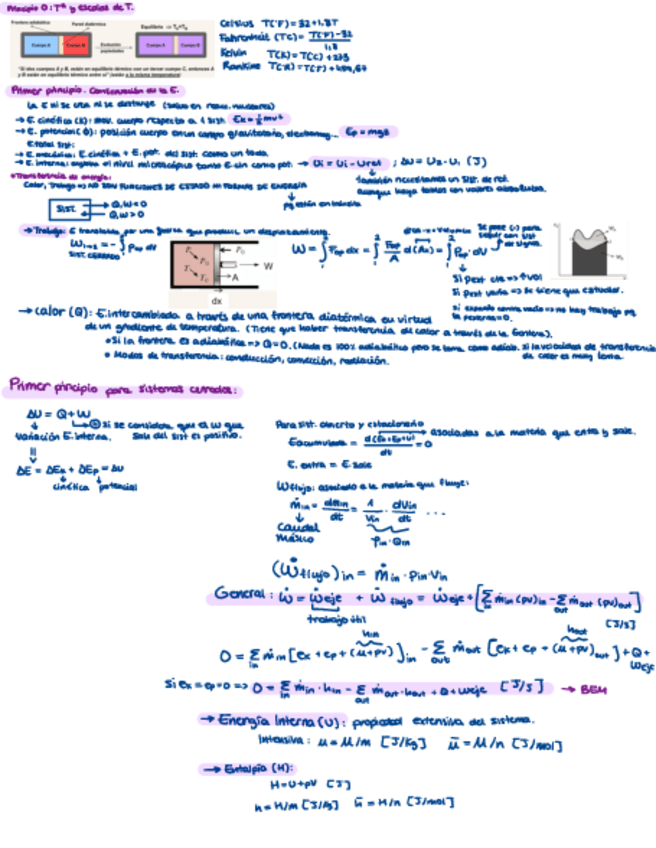 Principio 0: Tª y escalas de T.
Frontera adiabática
Pared diatérmica
Equilibrio
Cuerpo A
Cuerpo B
Evolución propiedades
Cuerpo A
Cuerpo B
"Si dos cuerpos A y B, están en equilibrio térmico con un tercer cuerpo C, entonces A y B están en equilibrio térmico entre sí" (están a la misma temperatura)
Celsius T(ºF) = 32+1,8T
Fahrenheit (TC) = T(F)-32 / 1,8
Kelvin T(K) = T(C) + 273
Rankine T(R) = T(F) + 459,67
Primer principio. Conservación de la E.
La E ni se crea ni se destruye (salvo en reacc. nucleares)
→ E. cinética (K): mov. cuerpo respecto a 1 sist. Ek = ½mv²
→ E. potencial (Φ): posición cuerpo en un campo gravitatorio, electromag... Ep = mgz
E total sist:
→ E. mecánica: E. cinética + E. pot. del sist. como un todo.
→ E. interna: engloba el nivel microscópico tanto E. cin como pot. → Ui = Ui - Uref ; ΔU = U2 - U1 (J)
también necesitamos un sist. de ref.
aunque haya tablas con valores absolutos.
Transferencia de energía:
Calor, Trabajo => NO SON FUNCIONES DE ESTADO NI FORMAS DE ENERGÍA
pq están en tránsito
SIST.
Q, W < 0
Q, W > 0
→ Trabajo: E transferida por una fuerza que produce un desplazamiento.
W1→2 = - ∫ Pop dv
SIST. CERRADO
P0
T0
A
W
dx
W = ∫ Fop dx = ∫ Fop/A d(Ax) = ∫ Pop · dV
Se pone (-) para seguir con crit de signos.
Si pext cte => ↑VOL
Si pext varía => se tiene que estudiar.
Si expande contra vacío => no hay trabajo pq la pexterna = 0.
→ Calor (Q): E. intercambiada a través de una frontera diatérmica en virtud
de un gradiente de temperatura. (Tiene que haber transferencia de calor a través de la frontera).
• Si la frontera es adiabática => Q = 0. (Nada es 100% adiabático pero se toma como adiab. si la velocidad de transferencia de calor es muy lenta.
• Modos de transferencia: conducción, convección, radiación.
Primer principio para sistemas cerrados:
ΔU = Q + W
Si se considera que el W que
sale del sist es positivo.
variación E. interna.
ΔE = ΔEk + ΔEp = ΔU
cinética potencial
Para sist. abierto y estacionario
Eacumulada = d(Ek+Ep+U)/dt = 0
asociadas a la materia que entra y sale.
E. entra = E. sale
W flujo: asociado a la materia que fluye:
ṁin = dmin/dt = 1/Vin · dVin/dt ...
caudal másico
ρin · Qin
(Ẇflujo)in = ṁin · pin · vin
General: Ẇ = Ẇeje + Ẇflujo = Ẇeje + [Σin ṁin (pv)in - Σout ṁout (pv)out]
trabajo útil
[J/s]
hin
hout
0 = Σin ṁin [ek + ep + (u+pv)]in - Σout ṁout [ek + ep + (u+pv)out] + Q + Weje
Si ek = ep = 0 => 0 = Σin ṁin · hin - Σout ṁout · hout + Q + Weje [J/s] → BEM
→ Energía Interna (U): propiedad extensiva del sistema.
Intensiva: u = U/m [J/kg] ū = U/n [J/mol]
→ Entalpía (H):
H = U + pV [J]
h = H/m [J/kg] h̄ = H/n [J/mol]